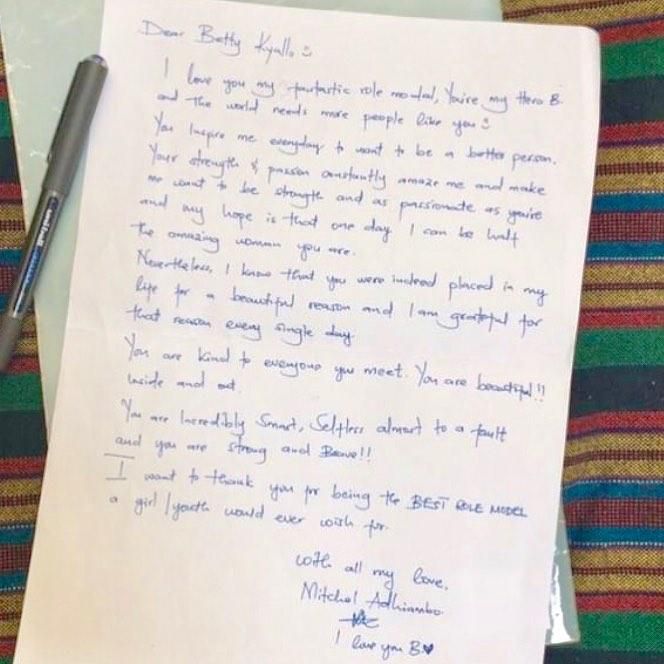 Dear Betty Kyallo :)
I love you my fantastic role modal, You're my Hero B.
and the world needs more people like you :)
You Inspire me everyday to want to be a better person.
Your strength & passion constantly amaze me and make
me want to be strength and as passionate as you're
and my hope is that one day I can be half
the amazing woman you are.
Nevertheless, I know that you were indeed placed in my
life for a beautiful reason and I am grateful for
that reason every single day.
You are kind to everyone you meet. You are beautiful!!
Inside and out.
You are Incredibly Smart, Selfless almost to a fault
and you are strong and Brave!!
I want to thank you for being the BEST ROLE MODEL
a girl/youth would ever wish for.
with all my love.
Mitchel Adhiambo.
I love you B.♥